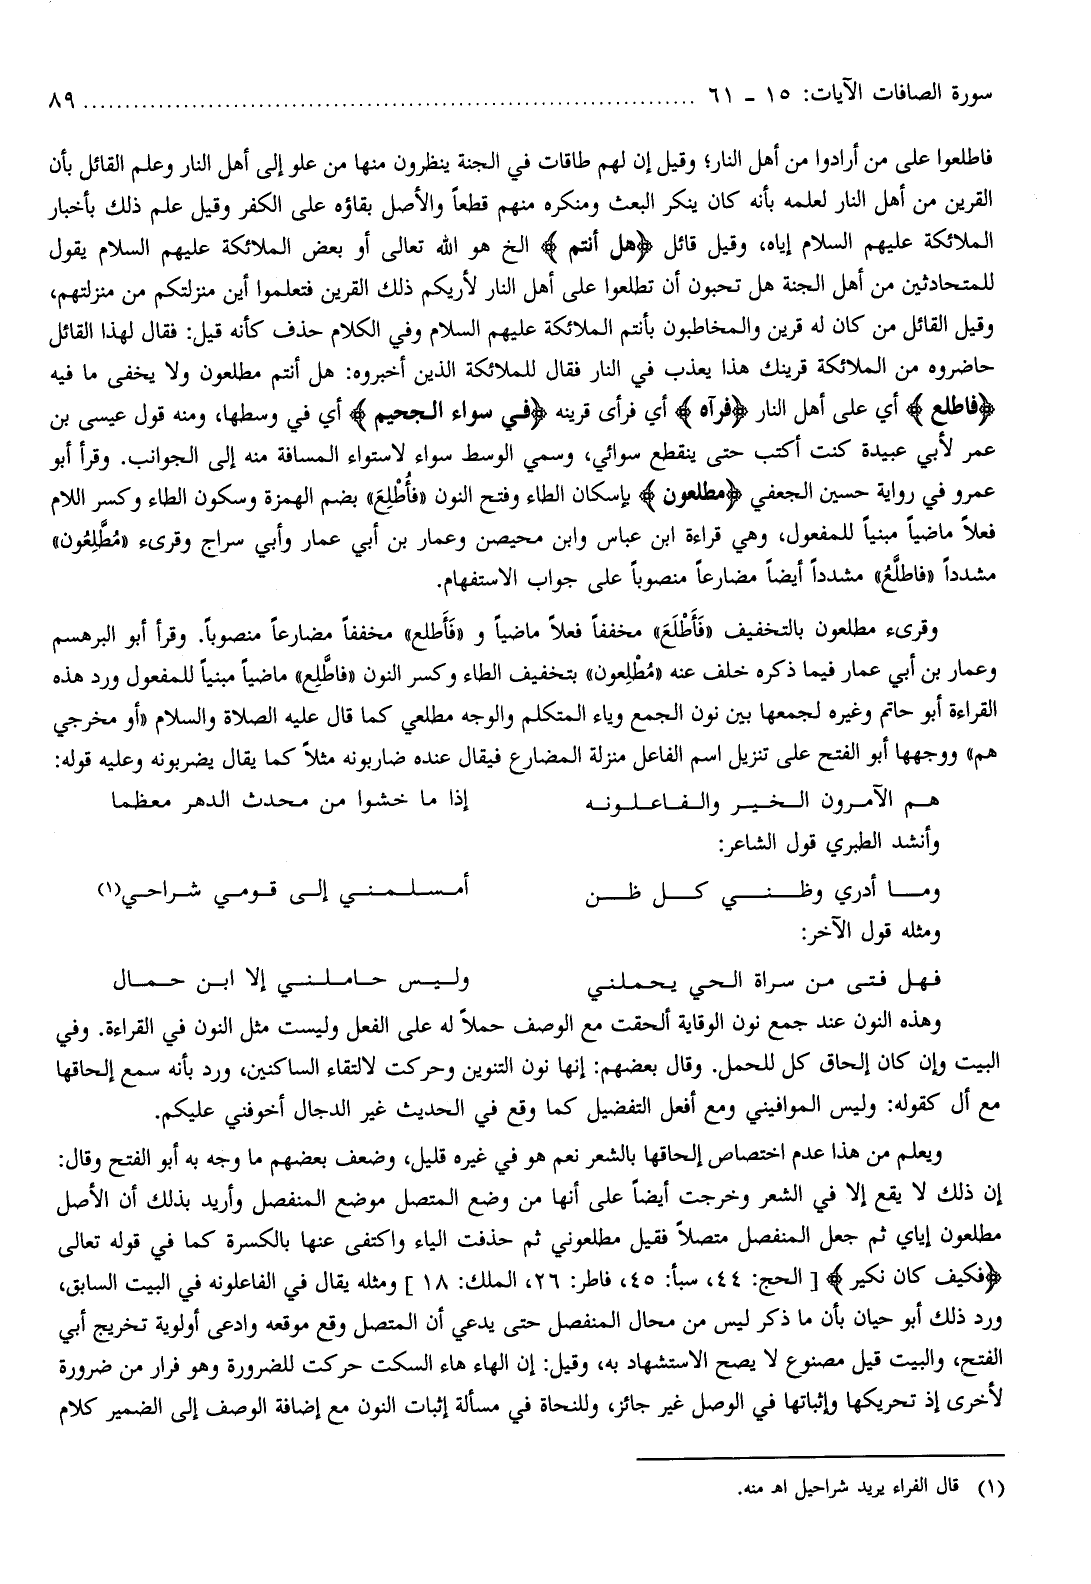 سورة الصافات الآيات: ١٥ ـ ٦١ ........................................................................ ٨٩
فاطلعوا على من أرادوا من أهل النار؛ وقيل إن لهم طاقات في الجنة ينظرون منها من علو إلى أهل النار وعلم القائل بأن
القرين من أهل النار لعلمه بأنه كان ينكر البعث ومنكره منهم قطعاً والأصل بقاؤه على الكفر وقيل علم ذلك بأخبار
الملائكة عليهم السلام إياه، وقيل قائل ﴿هل أنتم﴾ الخ هو الله تعالى أو بعض الملائكة عليهم السلام يقول
للمتحادثين من أهل الجنة هل تحبون أن تطلعوا على أهل النار لأريكم ذلك القرين فتعلموا أين منزلتكم من منزلتهم،
وقيل القائل من كان له قرين والمخاطبون بأنتم الملائكة عليهم السلام وفي الكلام حذف كأنه قيل: فقال لهذا القائل
حاضروه من الملائكة قرينك هذا يعذب في النار فقال للملائكة الذين أخبروه: هل أنتم مطلعون ولا يخفى ما فيه
﴿فاطلع﴾ أي على أهل النار ﴿فرآه﴾ أي فرأى قرينه ﴿في سواء الجحيم﴾ أي في وسطها، ومنه قول عيسى بن
عمر لأبي عبيدة كنت أكتب حتى ينقطع سوائي، وسمي الوسط سواء لاستواء المسافة منه إلى الجوانب. وقرأ أبو
عمرو في رواية حسين الجعفي ﴿مطلعون﴾ بإسكان الطاء وفتح النون «فأُطْلِعَ» بضم الهمزة وسكون الطاء وكسر اللام
فعلاً ماضياً مبنياً للمفعول، وهي قراءة ابن عباس وابن محيصن وعمار بن أبي عمار وأبي سراج وقرىء «مُطَّلِعُون»
مشدداً «فاطلَّعُ» مشدداً أيضاً مضارعاً منصوباً على جواب الاستفهام.
وقرىء مطلعون بالتخفيف «فَأَطْلَعَ» مخففاً فعلاً ماضياً و «فَأَطلع» مخففاً مضارعاً منصوباً. وقرأ أبو البرهسم
وعمار بن أبي عمار فيما ذكره خلف عنه «مُطْلِعون» بتخفيف الطاء وكسر النون «فاطَّلِع» ماضياً مبنياً للمفعول ورد هذه
القراءة أبو حاتم وغيره لجمعها بين نون الجمع وياء المتكلم والوجه مطلعي كما قال عليه الصلاة والسلام «أو مخرجي
هم» ووجهها أبو الفتح على تنزيل اسم الفاعل منزلة المضارع فيقال عنده ضاربونه مثلاً كما يقال يضربونه وعليه قوله:
هم الآمرون الخير والفاعلونه إذا ما خشوا من محدث الدهر معظما
وأنشد الطبري قول الشاعر:
وما أدري وظني كل ظن أمسلمني إلى قومي شراحي(١)
ومثله قول الآخر:
فهل فتى من سراة الحي يحملني وليس حاملني إلا ابن حمال
وهذه النون عند جمع نون الوقاية ألحقت مع الوصف حملاً له على الفعل وليست مثل النون في القراءة. وفي
البيت وإن كان إلحاق كل للحمل. وقال بعضهم: إنها نون التنوين وحركت لالتقاء الساكنين، ورد بأنه سمع إلحاقها
مع أل كقوله: وليس الموافيني ومع أفعل التفضيل كما وقع في الحديث غير الدجال أخوفني عليكم.
ويعلم من هذا عدم اختصاص إلحاقها بالشعر نعم هو في غيره قليل، وضعف بعضهم ما وجه به أبو الفتح وقال:
إن ذلك لا يقع إلا في الشعر وخرجت أيضاً على أنها من وضع المتصل موضع المنفصل وأريد بذلك أن الأصل
مطلعون إياي ثم جعل المنفصل متصلاً فقيل مطلعوني ثم حذفت الياء واكتفى عنها بالكسرة كما في قوله تعالى
﴿فكيف كان نكير﴾ [ الحج: ٤٤، سبأ: ٤٥، فاطر: ٢٦، الملك: ١٨ ] ومثله يقال في الفاعلونه في البيت السابق،
ورد ذلك أبو حيان بأن ما ذكر ليس من محال المنفصل حتى يدعي أن المتصل وقع موقعه وادعى أولوية تخريج أبي
الفتح، والبيت قيل مصنوع لا يصح الاستشهاد به، وقيل: إن الهاء هاء السكت حركت للضرورة وهو فرار من ضرورة
لأخرى إذ تحريكها وإثباتها في الوصل غير جائز، وللنحاة في مسألة إثبات النون مع إضافة الوصف إلى الضمير كلام
(١) قال الفراء يريد شراحيل اهـ منه.